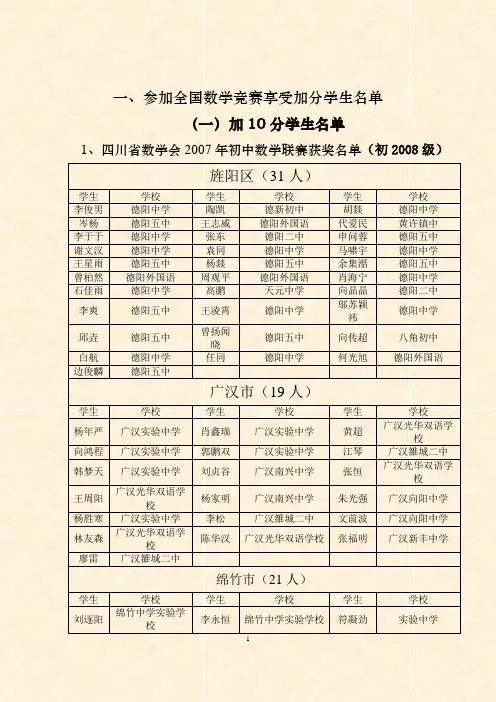 一、参加全国数学竞赛享受加分学生名单
(一) 加10分学生名单
1、四川省数学会2007年初中数学联赛获奖名单(初2008级)
旌阳区(31人)
学生 学校 学生 学校 学生 学校
李俊男 德阳中学 陶凯 德新初中 胡燚 德阳中学
岑杨 德阳五中 王志威 德阳外国语 代爱民 黄许镇中
李于于 德阳中学 张东 德阳二中 申问蓉 德阳五中
谢文汉 德阳中学 袁同 德阳中学 马啸宇 德阳中学
王星雨 德阳五中 杨燚 德阳五中 余集湉 德阳五中
曾柏然 德阳外国语 周观平 德阳外国语 肖海宁 德阳中学
石佳雨 德阳中学 高鹏 天元中学 向晶晶 德阳二中
李爽 德阳五中 王凌霄 德阳中学 邬苏颖
祎 德阳中学
邱垚 德阳五中 曾扬闻
晓 德阳五中 向传超 八角初中
白航 德阳中学 任同 德阳中学 何光旭 德阳外国语
边俊麟 德阳五中
广汉市(19人)
学生 学校 学生 学校 学生 学校
杨年严 广汉实验中学 肖鑫瑞 广汉实验中学 黄超 广汉光华双语学
校
向鸿程 广汉实验中学 郭鹏双 广汉实验中学 江琴 广汉雒城二中
韩梦天 广汉实验中学 刘贞谷 广汉南兴中学 张恒 广汉光华双语学
校
王周阳 广汉光华双语学
校 杨家明 广汉南兴中学 朱光强 广汉向阳中学
杨胜寒 广汉实验中学 李松 广汉雒城二中 文前波 广汉向阳中学
林友森 广汉光华双语学
校 陈华汉 广汉光华双语学校 张福明 广汉新丰中学
廖雷 广汉雒城二中
绵竹市(21人)
学生 学校 学生 学校 学生 学校
刘逐阳 绵竹中学实验学
校 李永恒 绵竹中学实验学校 符凝劲 实验中学
1